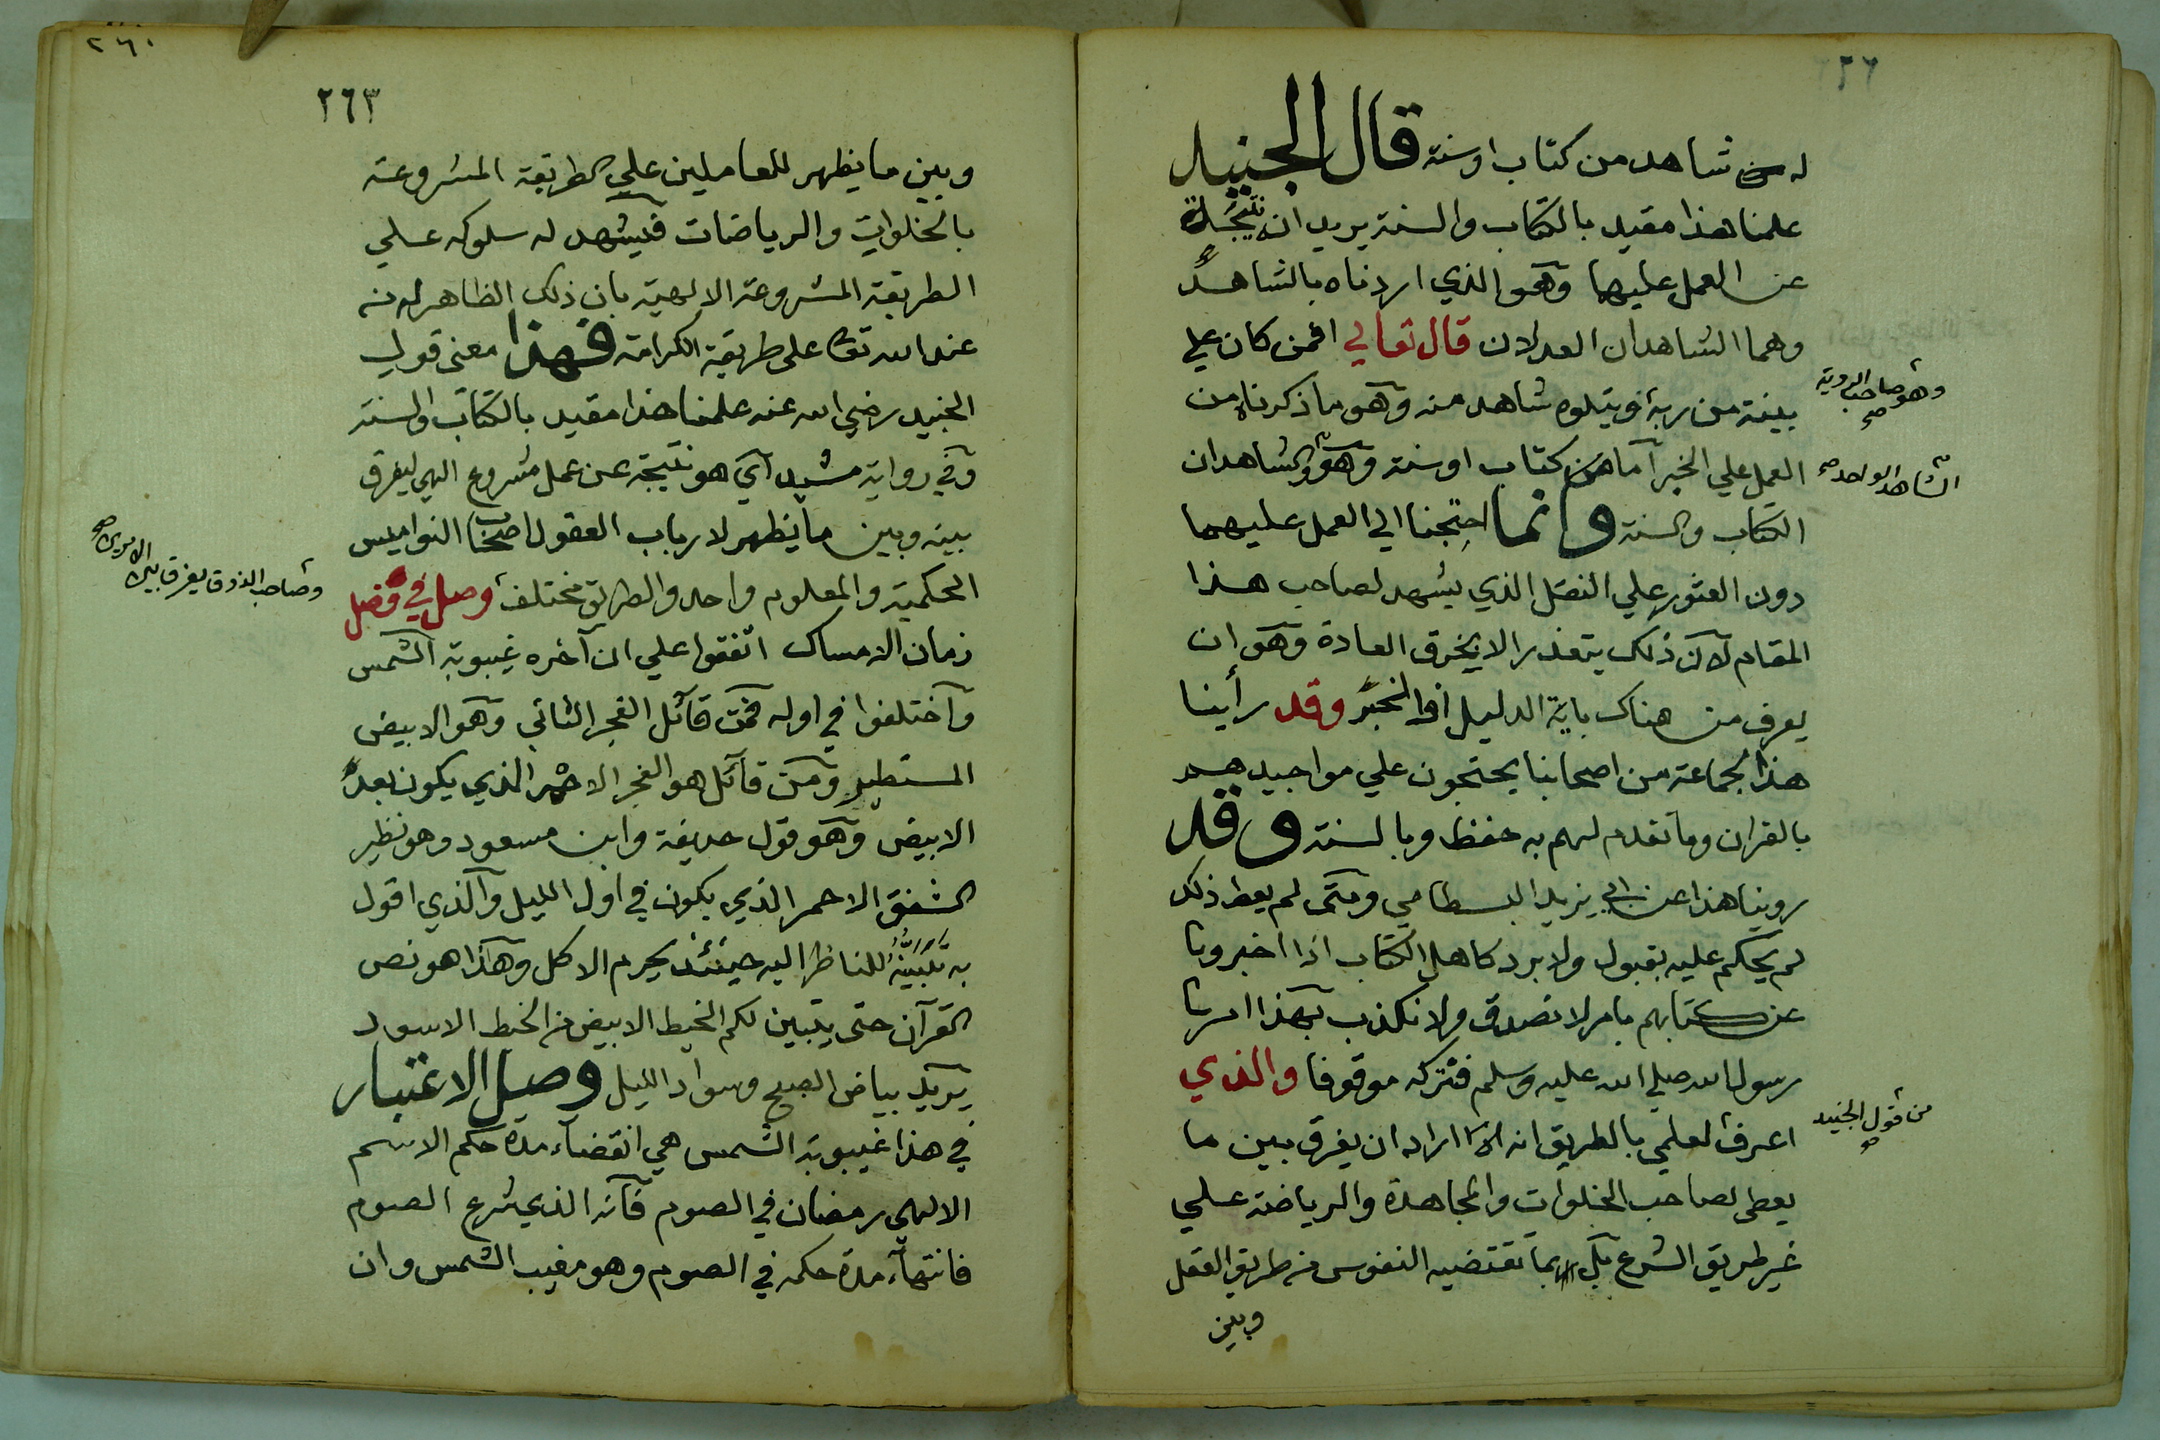 له شاهد من كتاب او سنة قال الجنيد
علمنا هذا مقيد بالكتاب والسنة يريد انه نتيجة
عن العمل عليهما وهو الذي اردناه بالشاهد
وهما الشاهدان العدلان قال تعالي افمن كان علي
بينة من ربه ويتلوه شاهد منه وهو ما ذكرناه من
وهو صاحب الروية صح
العمل علي الخبر اما من كتاب او سنة وهو والشاهدان
الشاهد الواحد صح
الكتاب والسنة وانما احتجنا الي العمل عليهما
دون العثور علي النقل الذي يشهد لصاحب هذا
المقام لان ذلك يتعذر الا بخرق العادة وهو ان
يعرف من هناك باية الدليل او الخبر وقد رأينا
هذا لجماعة من اصحابنا يحتجون علي مواجيدهم
بالقران وما تقدم لهم به حفظ وبالسنة وقد
روينا هذا عن ابي يزيد البسطامي ومتى لم يعط ذلك
لم يحكم عليه بقبول ولا برد كاهل الكتاب اذا اخبرونا
عن كتابهم بامر لا نصدق ولا نكذب بهذا امرنا
رسول الله صلي الله عليه وسلم فنتركه موقوفا والذي
اعرف لعلمي بالطريق انه اراد ان يفرق بين ما
من قول الجنيد صح
يعطى لصاحب الخلوات والمجاهدة والرياضة علي
غير طريق الشرع بل بما تقتضيه النفوس من طريق العقل
وبين
٢٦٠
٢٦٣
وبين ما يظهر للعاملين علي الطريقة المشروعة
بالخلوات والرياضات فيشهد له سلوكه علي
الطريقة المشروعة الالهية بان ذلك الظاهر له من
عند الله تعا على طريقة الكرامة فهذا معنى قول
الجنيد رضي الله عنه علمنا هذا مقيد بالكتاب والسنة
وفي رواية مشيد اي هو نتيجة عن عمل مشروع الهي ليفرق
بينه وبين ما يظهر لارباب العقول اصحاب النواميس
الحكمية والمعلوم واحد والطريق مختلف وصل في فصل
وصاحب الذوق يفرق بين الامرين صح
زمان الامساك اتفقوا علي ان آخره غيبوبة الشمس
واختلفوا في اوله فمن قائل الفجر الثاني وهو الابيض
المستطير ومن قائل هو الفجر الاحمر الذي يكون بعد
الابيض وهو قول حذيفة وابن مسعود وهو نظير
الشفق الاحمر الذي يكون في اول الليل والذي اقول
به تبينه للناظر اليه حينئذ يحرم الاكل وهذا هو نص
القرآن حتى يتبين لكم الخيط الابيض من الخيط الاسود
يريد بياض الصبح وسواد الليل وصل الاعتبار
في هذا غيبوبة الشمس هي انقضاء مدة حكم الاسم
الالهي رمضان في الصوم فانه الذي شرع الصوم
فانتهاء مدة حكمه في الصوم وهو مغيب الشمس وان